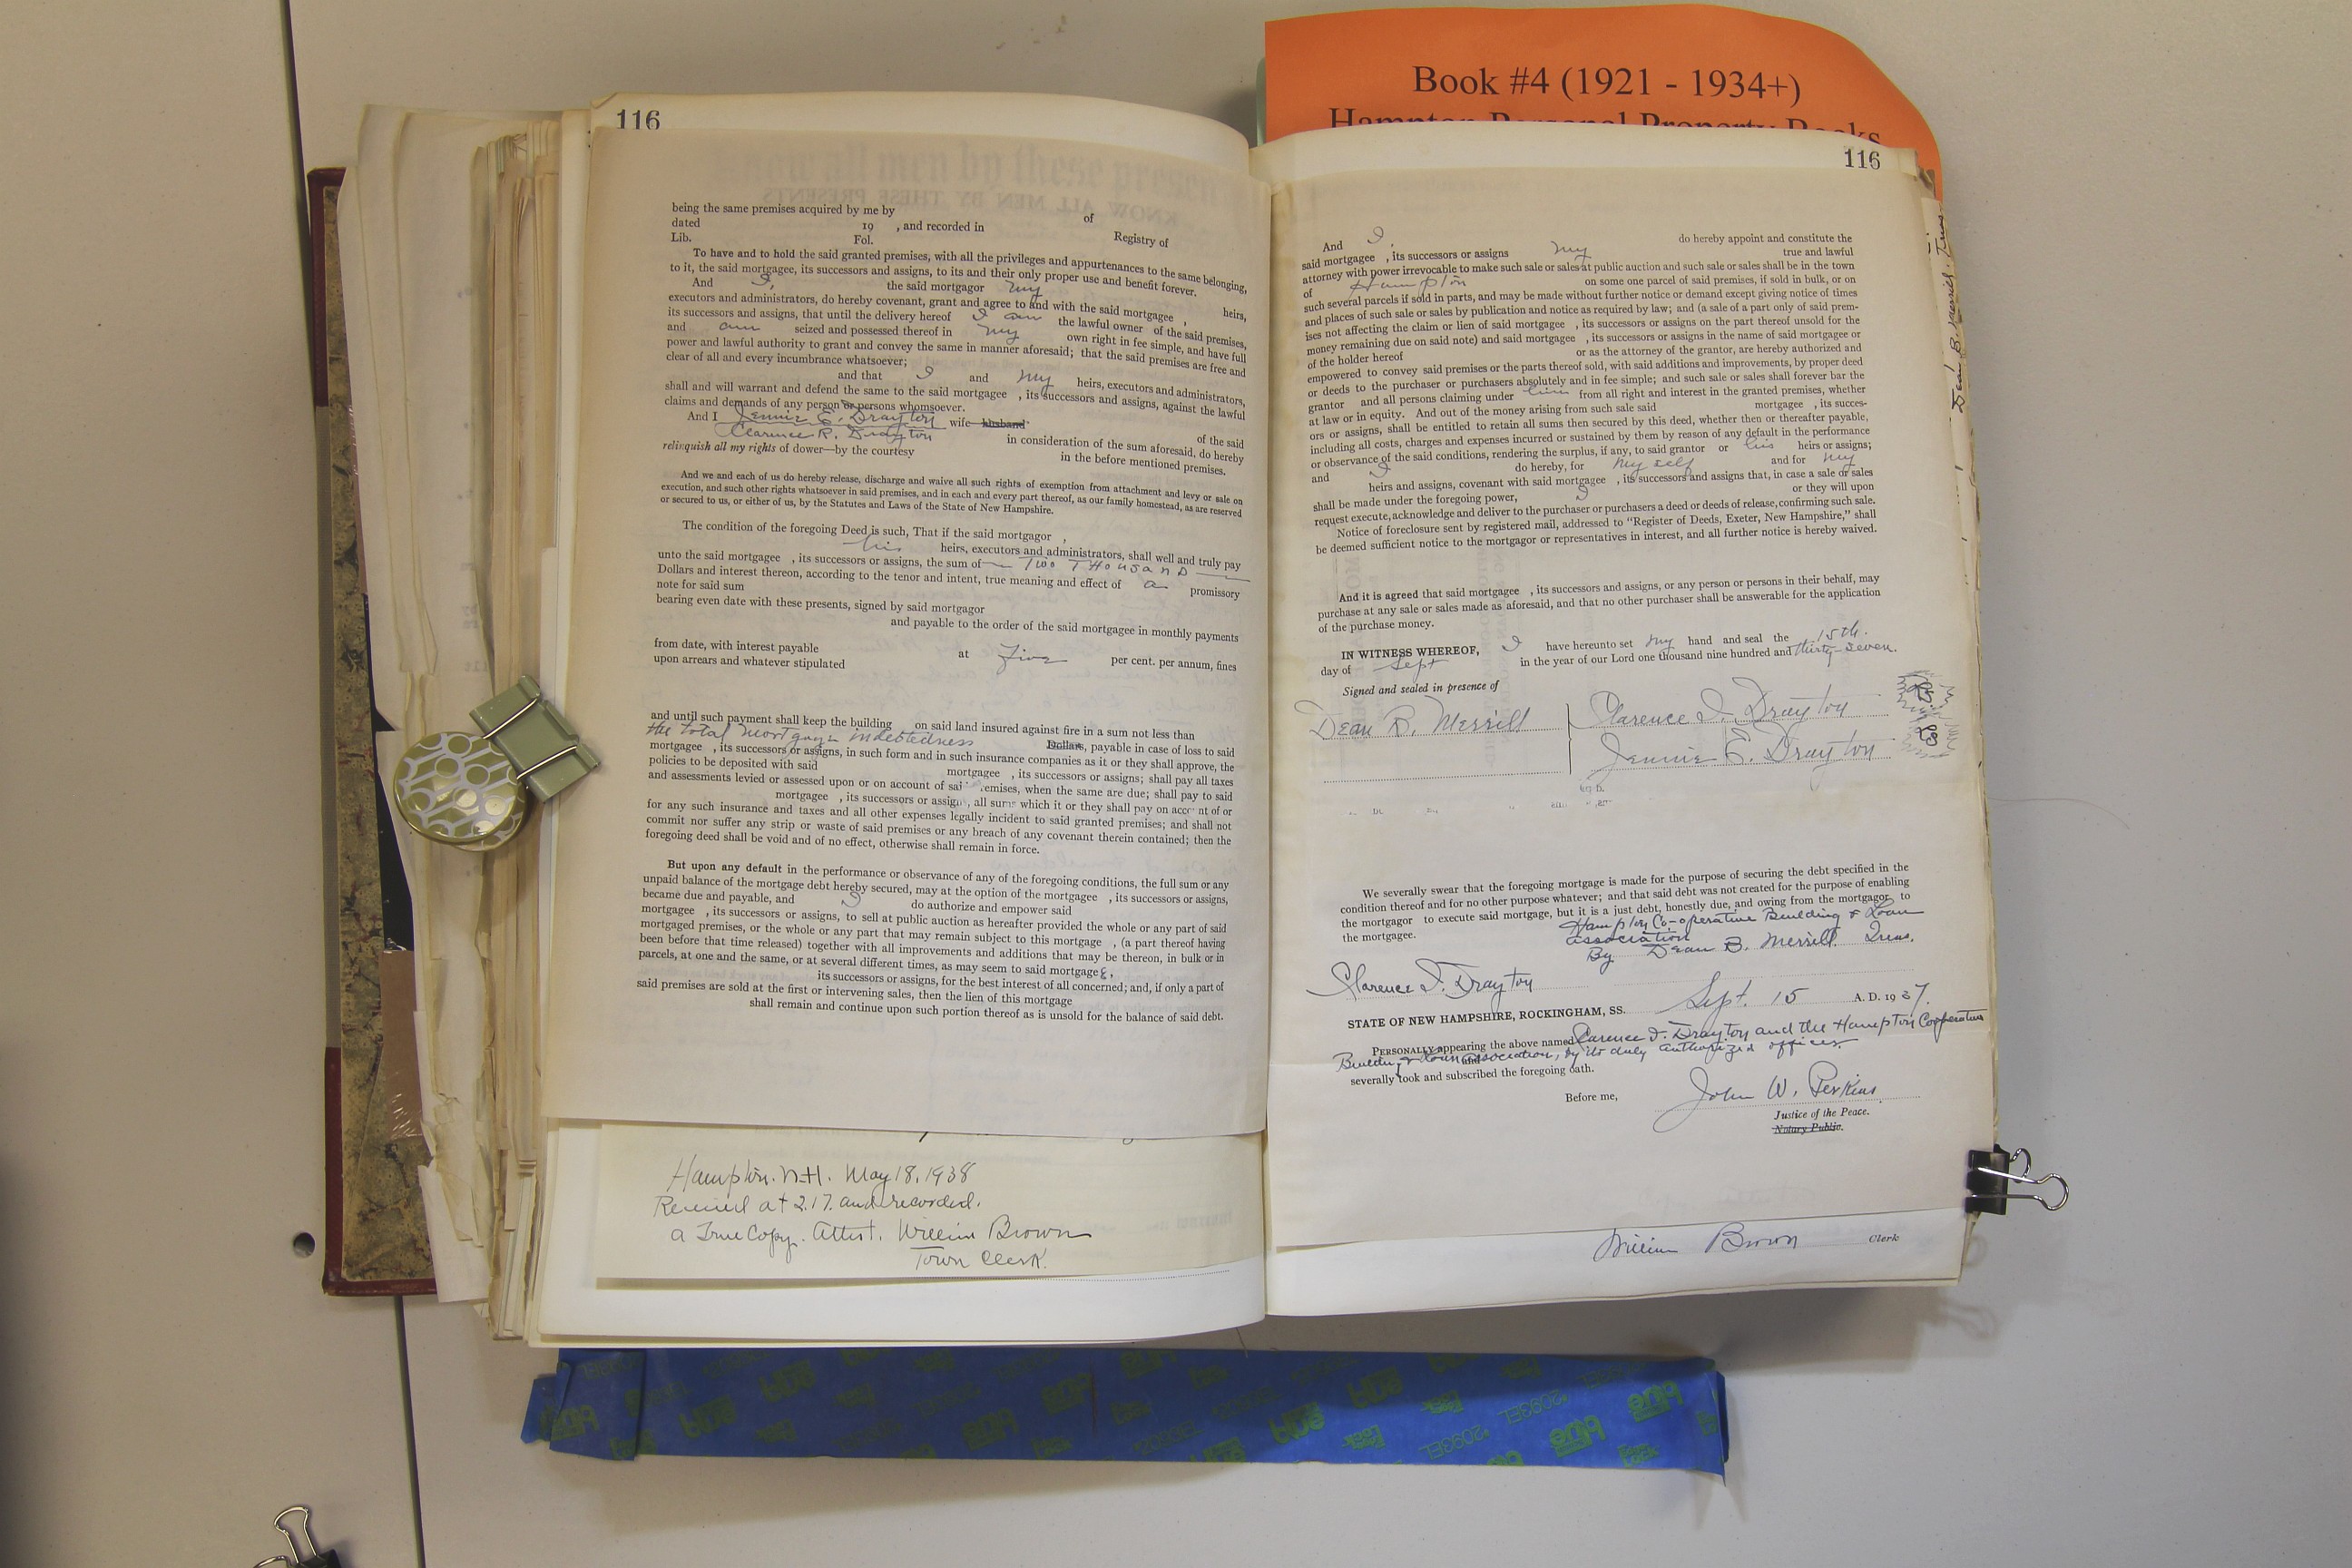 Book #4 (1921 - 1934+)
Hampton Personal Property Books
116
being the same premises acquired by me by of
dated 19 , and recorded in Registry of
Lib. Fol.
To have and to hold the said granted premises, with all the privileges and appurtenances to the same belonging,
to it, the said mortgagee, its successors and assigns, to its and their only proper use and benefit forever.
And I, the said mortgagor my heirs,
executors and administrators, do hereby covenant, grant and agree to and with the said mortgagee ,
its successors and assigns, that until the delivery hereof I am the lawful owner of the said premises,
and am seized and possessed thereof in my own right in fee simple, and have full
power and lawful authority to grant and convey the same in manner aforesaid; that the said premises are free and
clear of all and every incumbrance whatsoever;
and that I and my heirs, executors and administrators,
shall and will warrant and defend the same to the said mortgagee , its successors and assigns, against the lawful
claims and demands of any person or persons whomsoever.
And I Jennie E. Drayton wife husband of the said
Clarence R. Drayton in consideration of the sum aforesaid, do hereby
relinquish all my rights of dower—by the courtesy in the before mentioned premises.
And we and each of us do hereby release, discharge and waive all such rights of exemption from attachment and levy or sale on
execution, and such other rights whatsoever in said premises, and in each and every part thereof, as our family homestead, as are reserved
or secured to us, or either of us, by the Statutes and Laws of the State of New Hampshire.
The condition of the foregoing Deed is such, That if the said mortgagor ,
his heirs, executors and administrators, shall well and truly pay
unto the said mortgagee , its successors or assigns, the sum of — Two Thousand —
Dollars and interest thereon, according to the tenor and intent, true meaning and effect of a promissory
note for said sum
bearing even date with these presents, signed by said mortgagor
and payable to the order of the said mortgagee in monthly payments
from date, with interest payable at Five per cent. per annum, fines
upon arrears and whatever stipulated
and until such payment shall keep the building on said land insured against fire in a sum not less than
the total mortgage indebtedness Dollars, payable in case of loss to said
mortgagee , its successors or assigns, in such form and in such insurance companies as it or they shall approve, the
policies to be deposited with said mortgagee , its successors or assigns; shall pay all taxes
and assessments levied or assessed upon or on account of sai emises, when the same are due; shall pay to said
mortgagee , its successors or assigns, all sums which it or they shall pay on account of or
for any such insurance and taxes and all other expenses legally incident to said granted premises; and shall not
commit nor suffer any strip or waste of said premises or any breach of any covenant therein contained; then the
foregoing deed shall be void and of no effect, otherwise shall remain in force.
But upon any default in the performance or observance of any of the foregoing conditions, the full sum or any
unpaid balance of the mortgage debt hereby secured, may at the option of the mortgagee , its successors or assigns,
became due and payable, and I do authorize and empower said
mortgagee , its successors or assigns, to sell at public auction as hereafter provided the whole or any part of said
mortgaged premises, or the whole or any part that may remain subject to this mortgage , (a part thereof having
been before that time released) together with all improvements and additions that may be thereon, in bulk or in
parcels, at one and the same, or at several different times, as may seem to said mortgagee,
its successors or assigns, for the best interest of all concerned; and, if only a part of
said premises are sold at the first or intervening sales, then the lien of this mortgage
shall remain and continue upon such portion thereof as is unsold for the balance of said debt.
Hampton. N.H. May 18, 1938
Received at 2.17. and recorded.
a True Copy. Attest. William Brown
Town Clerk.
116
And I, do hereby appoint and constitute the
said mortgagee , its successors or assigns my true and lawful
attorney with power irrevocable to make such sale or sales at public auction and such sale or sales shall be in the town
of Hampton on some one parcel of said premises, if sold in bulk, or on
such several parcels if sold in parts, and may be made without further notice or demand except giving notice of times
and places of such sale or sales by publication and notice as required by law; and (a sale of a part only of said prem-
ises not affecting the claim or lien of said mortgagee , its successors or assigns on the part thereof unsold for the
money remaining due on said note) and said mortgagee , its successors or assigns in the name of said mortgagee or
of the holder hereof or as the attorney of the grantor, are hereby authorized and
empowered to convey said premises or the parts thereof sold, with said additions and improvements, by proper deed
or deeds to the purchaser or purchasers absolutely and in fee simple; and such sale or sales shall forever bar the
grantor and all persons claiming under him from all right and interest in the granted premises, whether
at law or in equity. And out of the money arising from such sale said mortgagee , its succes-
ors or assigns, shall be entitled to retain all sums then secured by this deed, whether then or thereafter payable,
including all costs, charges and expenses incurred or sustained by them by reason of any default in the performance
or observance of the said conditions, rendering the surplus, if any, to said grantor or his heirs or assigns;
and I do hereby, for my self and for my
heirs and assigns, covenant with said mortgagee , its successors and assigns that, in case a sale or sales
shall be made under the foregoing power, I or they will upon
request execute, acknowledge and deliver to the purchaser or purchasers a deed or deeds of release, confirming such sale.
Notice of foreclosure sent by registered mail, addressed to "Register of Deeds, Exeter, New Hampshire," shall
be deemed sufficient notice to the mortgagor or representatives in interest, and all further notice is hereby waived.
And it is agreed that said mortgagee , its successors and assigns, or any person or persons in their behalf, may
purchase at any sale or sales made as aforesaid, and that no other purchaser shall be answerable for the application
of the purchase money.
IN WITNESS WHEREOF, I have hereunto set my hand and seal the 15th.
day of Sept in the year of our Lord one thousand nine hundred and thirty-seven.
Signed and sealed in presence of
Dean B. Merrill Clarence I. Drayton
Jennie E. Drayton
We severally swear that the foregoing mortgage is made for the purpose of securing the debt specified in the
condition thereof and for no other purpose whatever; and that said debt was not created for the purpose of enabling
the mortgagor to execute said mortgage, but it is a just debt, honestly due, and owing from the mortgagor to
the mortgagee. Hampton Co-operative Building & Loan
association
By Dean B. Merrill. Treas.
Clarence I. Drayton
STATE OF NEW HAMPSHIRE, ROCKINGHAM, SS. Sept. 15 A. D. 1937.
PERSONALLY appearing the above named Clarence I. Drayton and the Hampton Cooperative
Building & Loan association, by its duly authorized officer
and
severally took and subscribed the foregoing oath.
Before me, John W. Perkins
Justice of the Peace.
Notary Public.
William Brown Clerk
Dean B. Merrill. Treas